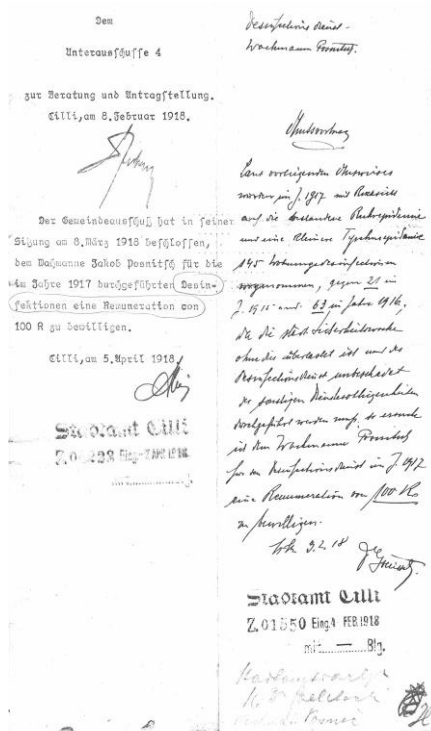 Dem
Unterausschusse 4
zur Beratung und Antragstellung.
Cilli, am 8. Februar 1918.
Der Gemeindeausschuß hat in seiner
Sitzung am 8. März 1918 beschlossen,
dem Wachmanne Jakob Posnitsch für die
im Jahre 1917 durchgeführten Desin-
fektionen eine Remuneration von
100 K zu bewilligen.
Cilli, am 5. April 1918
Stadtamt Cilli
Eing. 1918
Desinfections dienst -
Wachmann
Amtsvortrag
Laut vorliegenden Ausweises
wurden im J. 1917 mit Rücksicht
auf die bestandene Ruhrepidemie
und eine kleinere Typhusepidemie
145 Wohnungsdesinfectionen
vorgenommen, gegen 21 im
J. 1915 und 63 im Jahre 1916,
da die städt. Sicherheitswache
ohne dies überlastet ist und der
Desinfectionsdienst unbeschadet
der sonstigen Dienstobliegenheiten
durchgeführt werden muß, so ersuche
ich dem Wachmanne
für den Desinfectionsdienst im J. 1917
eine Remuneration von 100 K
zu bewilligen.
3.2.18
Stadtamt Cilli
Z. 01550 Eing. 4 FEB. 1918
mit — Blg.